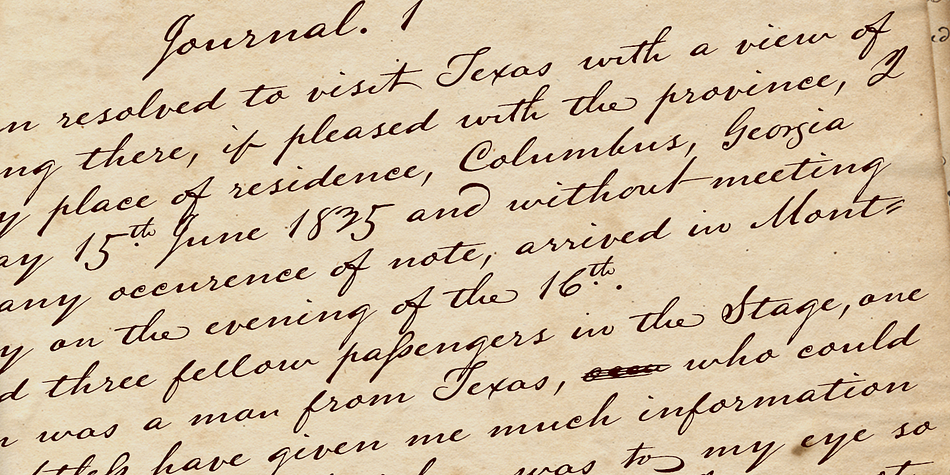 Journal. 1
n resolved to visit Texas with a view of
ng there, if pleased with the province, I
y place of residence, Columbus, Georgia
ay 15th June 1835 and without meeting
any occurence of note, arrived in Mont=
y on the evening of the 16th.
d three fellow passengers in the Stage, one
was a man from Texas, who could
ttless have given me much information
was to my eye so